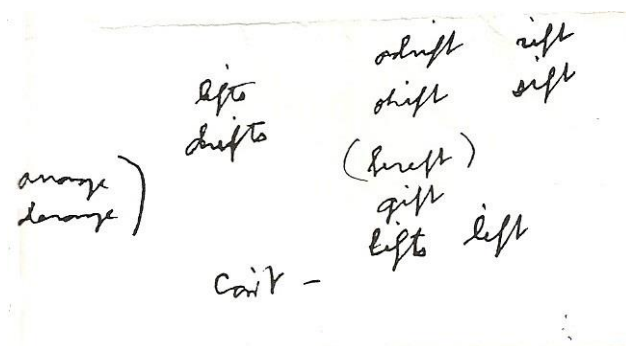 adrift rift
lifts shift sift
drifts (bereft)
arrange ) gift
derange lifts left
Can't -